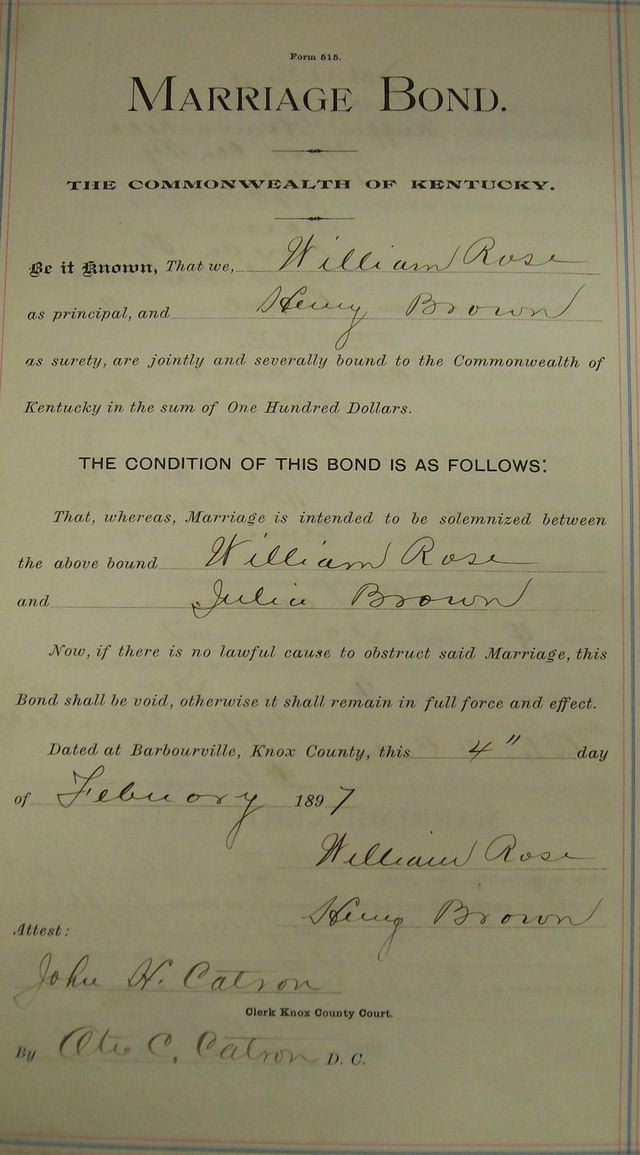 Form 515.
MARRIAGE BOND.
THE COMMONWEALTH OF KENTUCKY.
Be it Known, That we, William Rose
as principal, and Henry Brown
as surety, are jointly and severally bound to the Commonwealth of
Kentucky in the sum of One Hundred Dollars.
THE CONDITION OF THIS BOND IS AS FOLLOWS:
That, whereas, Marriage is intended to be solemnized between
the above bound William Rose
and Julia Brown
Now, if there is no lawful cause to obstruct said Marriage, this
Bond shall be void, otherwise it shall remain in full force and effect.
Dated at Barbourville, Knox County, this 4" day
of February 1897
William Rose
Henry Brown
Attest:
John H. Catron
Clerk Knox County Court.
By Otis C. Catron D. C.